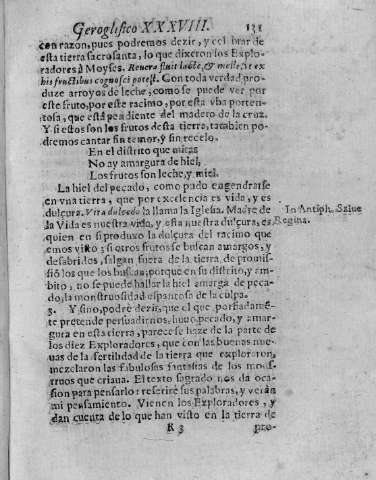 Geroglifico XXXVIII. 131
con razon, pues podremos dezir, y celebrar de
esta tierra sacrosanta, lo que dixeron los Explo-
radores à Moyses. Revera fluit lacte, & melle, vt ex
his fructibus cognosci potest. Con toda verdad pro-
duze arroyos de leche, como se puede ver por
este fruto, por este racimo, por esta vba porten-
tosa, que està pendiente del madero de la cruz.
Y si estos son los frutos desta tierra, tambien po-
dremos cantar sin temor, y sin recelo.
En el distrito que miras
No ay amargura de hiel,
Los frutos son leche, y miel.
La hiel del pecado, como pudo engendrarse
en vna tierra, que por excelencia es vida, y es
dulçura. Vita dulcedo la llama la Iglesia. Madre de
la Vida es nuestra vida, y esta nuestra dulçura, es
In Antiph. Salue
Regina.
quien en si produxo la dulçura del racimo que
emos visto; si otros frutos se buscan amargos, y
desabridos, salgan fuera de la tierra, de promis-
siõ los que los buscan, porque en su distrito, y am-
bito, no se puede hallar la hiel amarga de peca-
do, la monstruosidad espantosa de la culpa.
3. Y sino, podrè dezir, que el que porfiadamẽ-
te pretende persuadirnos, huuo pecado, y amar-
gura en esta tierra, parece se haze de la parte de
los diez Exploradores, que con las buenas nue-
uas de la fertilidad de la tierra que exploraron,
mezclaron las fabulosas fantasias de los mons-
truos que criaua. El texto sagrado nos da oca-
sion para pensarlo: referirè sus palabras, y veràn
mi pensamiento. Vienen los Exploradores, y
dan cuenta de lo que han visto en la tierra de
R 3 pro-